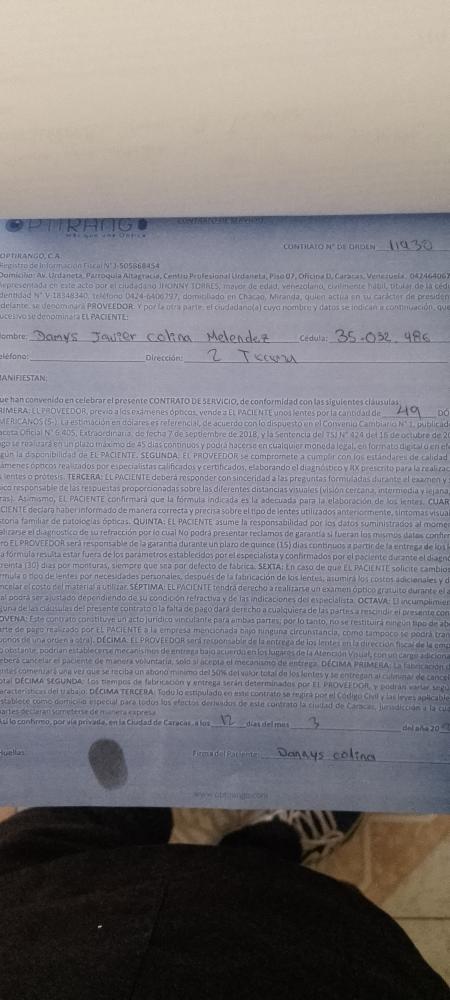 OPTIRANGO
Más que una Óptica
CONTRATO DE SERVICIO
CONTRATO N° DE ORDEN 11930
OPTIRANGO, C.A.
Registro de Información Fiscal N° J-505868454
Domicilio: Av. Urdaneta, Parroquia Altagracia, Centro Profesional Urdaneta, Piso 07, Oficina D, Caracas, Venezuela. 042464067
Representada en este acto por el ciudadano JHONNY TORRES, mayor de edad, venezolano, civilmente hábil, titular de la céd
dentidad N° V-18348340, teléfono 0424-6406797, domiciliado en Chacao, Miranda, quien actúa en su carácter de presiden
delante, se denominará PROVEEDOR. Y por la otra parte, el ciudadano(a) cuyo nombre y datos se indican a continuación, que
ucesivo se denominará EL PACIENTE:
ombre: Danys Javier colina Melendez Cédula: 35-032.486
eléfono: Dirección: 2
MANIFIESTAN:
ue han convenido en celebrar el presente CONTRATO DE SERVICIO, de conformidad con las siguientes cláusulas:
RIMERA: EL PROVEEDOR, previo a los exámenes ópticos, vende a EL PACIENTE unos lentes por la cantidad de 49 DÓ
MERICANOS ($-). La estimación en dólares es referencial, de acuerdo con lo dispuesto en el Convenio Cambiario N° 1, publicad
aceta Oficial N° 6.405, Extraordinaria, de fecha 7 de septiembre de 2018, y la Sentencia del TSJ N° 424 del 16 de octubre de 20
go se realizará en un plazo máximo de 45 días continuos y podrá hacerse en cualquier moneda legal, en formato digital o en ef
gún la disponibilidad de EL PACIENTE. SEGUNDA: EL PROVEEDOR se compromete a cumplir con los estándares de calidad
ámenes ópticos realizados por especialistas calificados y certificados, elaborando el diagnóstico y RX prescrito para la realizac
s lentes o prótesis. TERCERA: EL PACIENTE deberá responder con sinceridad a las preguntas formuladas durante el examen y
ico responsable de las respuestas proporcionadas sobre las diferentes distancias visuales (visión cercana, intermedia y lejana
ras). Asimismo, EL PACIENTE confirmará que la fórmula indicada es la adecuada para la elaboración de los lentes. CUAR
CIENTE declara haber informado de manera correcta y precisa sobre el tipo de lentes utilizados anteriormente, síntomas visual
storia familiar de patologías ópticas. QUINTA: EL PACIENTE asume la responsabilidad por los datos suministrados al mome
alizarse el diagnóstico de su refracción por lo cual No podrá presentar reclamos de garantía si fueran los mismos datos confir
ro EL PROVEEDOR será responsable de la garantía durante un plazo de quince (15) días continuos a partir de la entrega de los l
a fórmula resulta estar fuera de los parámetros establecidos por el especialista y confirmados por el paciente durante el diagnó
reinta (30) días por monturas, siempre que sea por defecto de fábrica. SEXTA: En caso de que EL PACIENTE solicite cambios
rmula o tipo de lentes por necesidades personales, después de la fabricación de los lentes, asumirá los costos adicionales y d
ncelar el costo del material a utilizar. SÉPTIMA: EL PACIENTE tendrá derecho a realizarse un examen óptico gratuito durante el a
al podrá ser ajustado dependiendo de su condición refractiva y de las indicaciones del especialista. OCTAVA: El incumplimien
guna de las cláusulas del presente contrato o la falta de pago dará derecho a cualquiera de las partes a rescindir el presente con
OVENA: Este contrato constituye un acto jurídico vinculante para ambas partes; por lo tanto, no se restituirá ningún tipo de ab
arte de pago realizado por EL PACIENTE a la empresa mencionada bajo ninguna circunstancia, como tampoco se podrá tran
onos de una orden a otra). DÉCIMA: EL PROVEEDOR será responsable de la entrega de los lentes en la dirección fiscal de la em
o obstante, podrían establecerse mecanismos de entrega bajo acuerdo en los lugares de la Atención Visual, con un cargo adicion
eberá cancelar el paciente de manera voluntaria, solo si acepta el mecanismo de entrega. DÉCIMA PRIMERA: La fabricación d
ntes comenzará una vez que se reciba un abono mínimo del 50% del valor total de los lentes y se entregan al culminar de cancel
otal DÉCIMA SEGUNDA: Los tiempos de fabricación y entrega serán determinados por EL PROVEEDOR, y podrán variar segú
aracterísticas del trabajo. DÉCIMA TERCERA: Todo lo estipulado en este contrato se regirá por el Código Civil y las leyes aplicable
establece como domicilio especial para todos los efectos derivados de este contrato la ciudad de Caracas, Jurisdicción a la cua
partes declaran someterse de manera expresa.
Así lo confirmo, por vía privada, en la Ciudad de Caracas, a los 12 días del mes 3 del año 20
Huellas: Firma del Paciente: Dannys colina
www.optirango.com